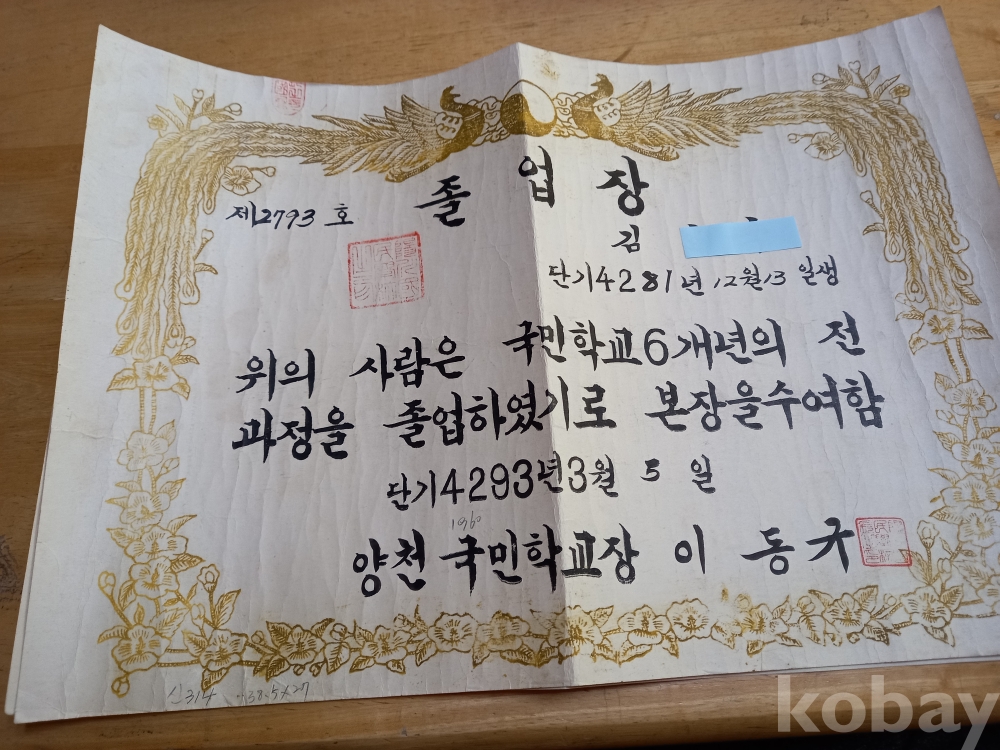 졸업장
제2793호
김
단기4281년 12월13일생
위의 사람은 국민학교6개년의 전
과정을 졸업하였기로 본장을수여함
단기4293년3월 5 일
1960
양천 국민학교장 이 동규
신314 38.5x27
kobay